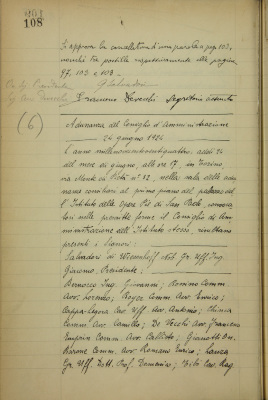 108
Si approva la cancellatura d'una parola a pag. 103,
nonché tre postille rispettivamente alle pagine
97, 103 e 109.
(6)
Adunanza del Consiglio d'Amministrazione
24 giugno 1924
L'anno millenovecentoventiquattro, addì 24
del mese di giugno, alle ore 17, in Torino
via Monte di Pietà n° 32, nella sala delle adu
nanze consiliari al primo piano del palazzo del
l'Istituto delle Opere Pie di San Paolo, convoca
tosi nelle prescritte forme il Consiglio di Am
ministrazione dell'Istituto stesso, risultano
presenti i Signori:
Salvadori di Wiesenhoff Nob. Gr. Uff. Ing.
Giacomo, Presidente;
Ing. Giovanni; Bonino Comm.
Avv. Lorenzo; Comm. Avv. Enrico;
Cappa-Legora Cav. Uff. Avv. Antonio; Chiesa
Comm. Avv. Camillo; De Vecchi Avv. Francesco
Comm. Avv. Callisto; Gianotti On.
Barone Comm. Avv. Romano Enrico; Lanza
Gr. Uff. Dott. Prof. Domenico; Cav. Rag.